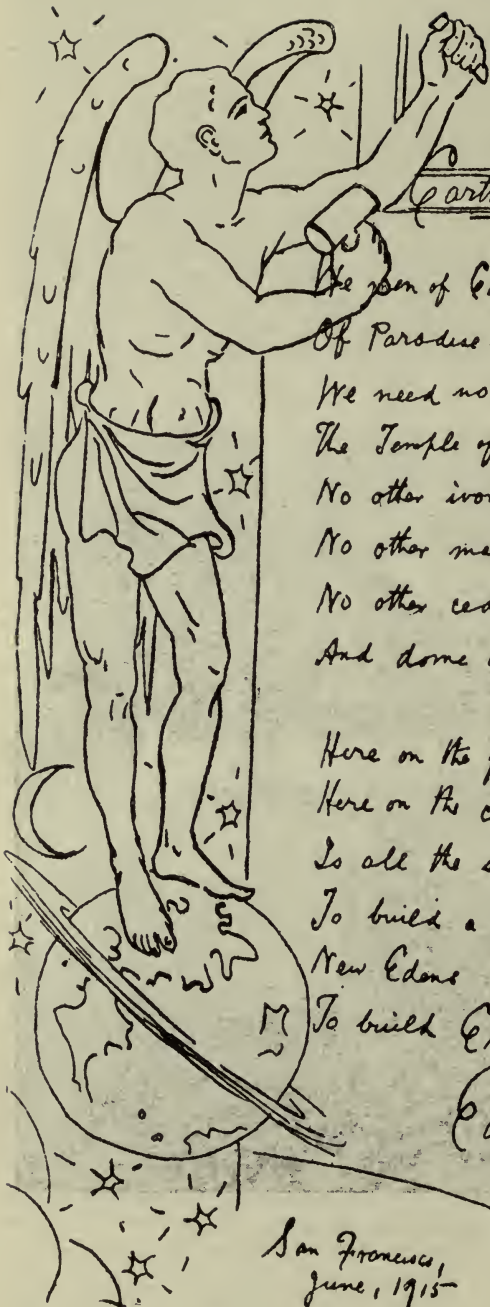 Eart
We men of E
Of Paradise
We need no
The Temple of
No other ivo
No other ma
No other ced
And dome
Here on the p
Here on the c
Is all the s
To build a
New Edens
To build E
San Francisco,
June, 1915